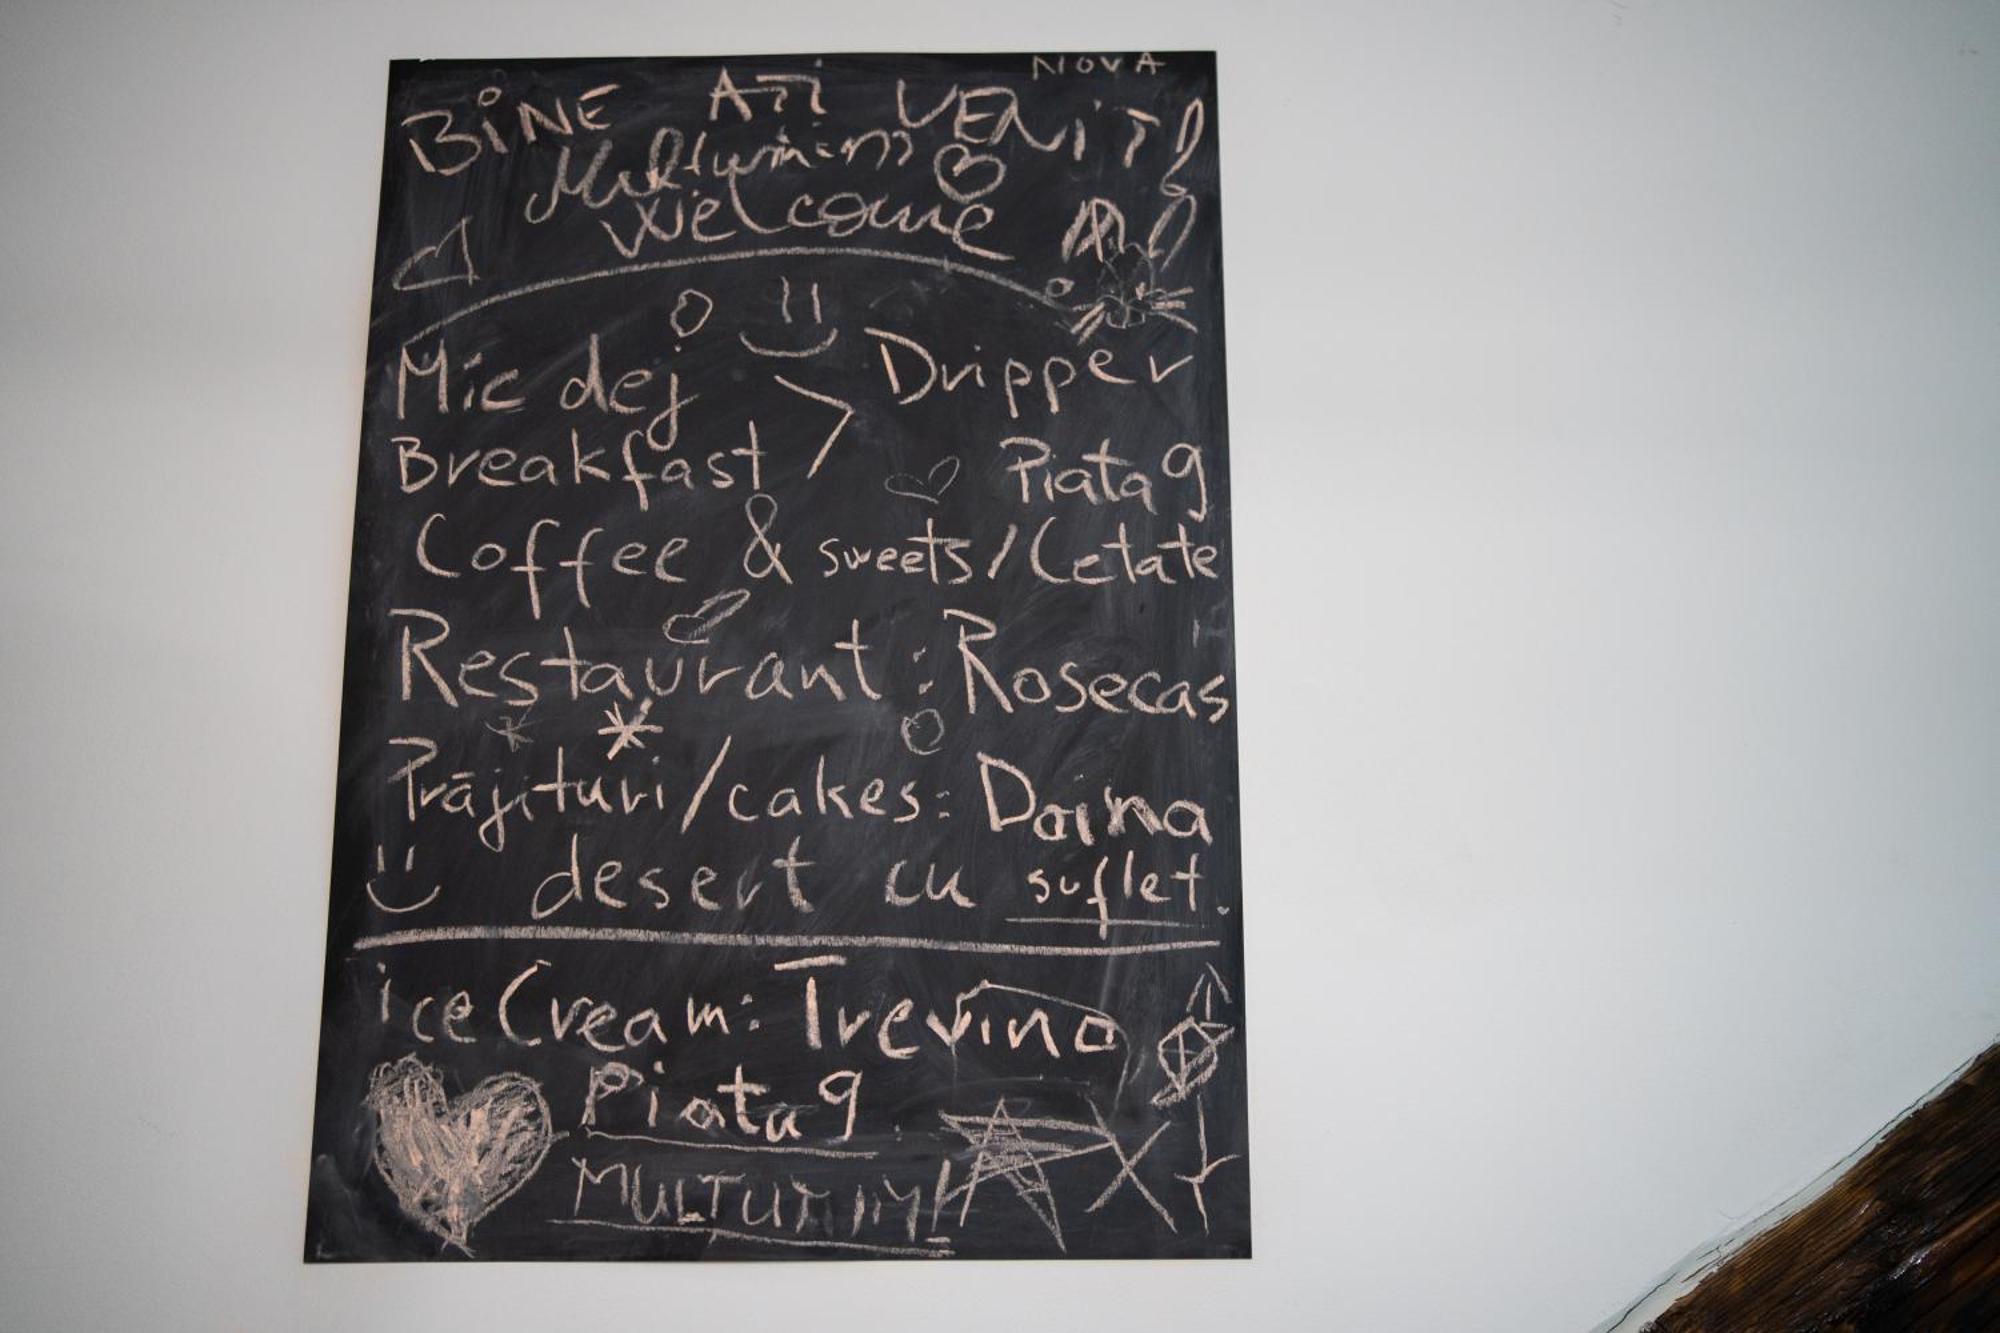 NOVA
BiNE AȚi VENiT!
Multumim
Welcome
Mic dej > Dripper
Breakfast Piata 9
Coffee & sweets / Cetate
Restaurant : Rosecas
Prăjituri / cakes: Doina
desert cu suflet.
ice Cream: Trevino
Piata 9
MULTUMIM!